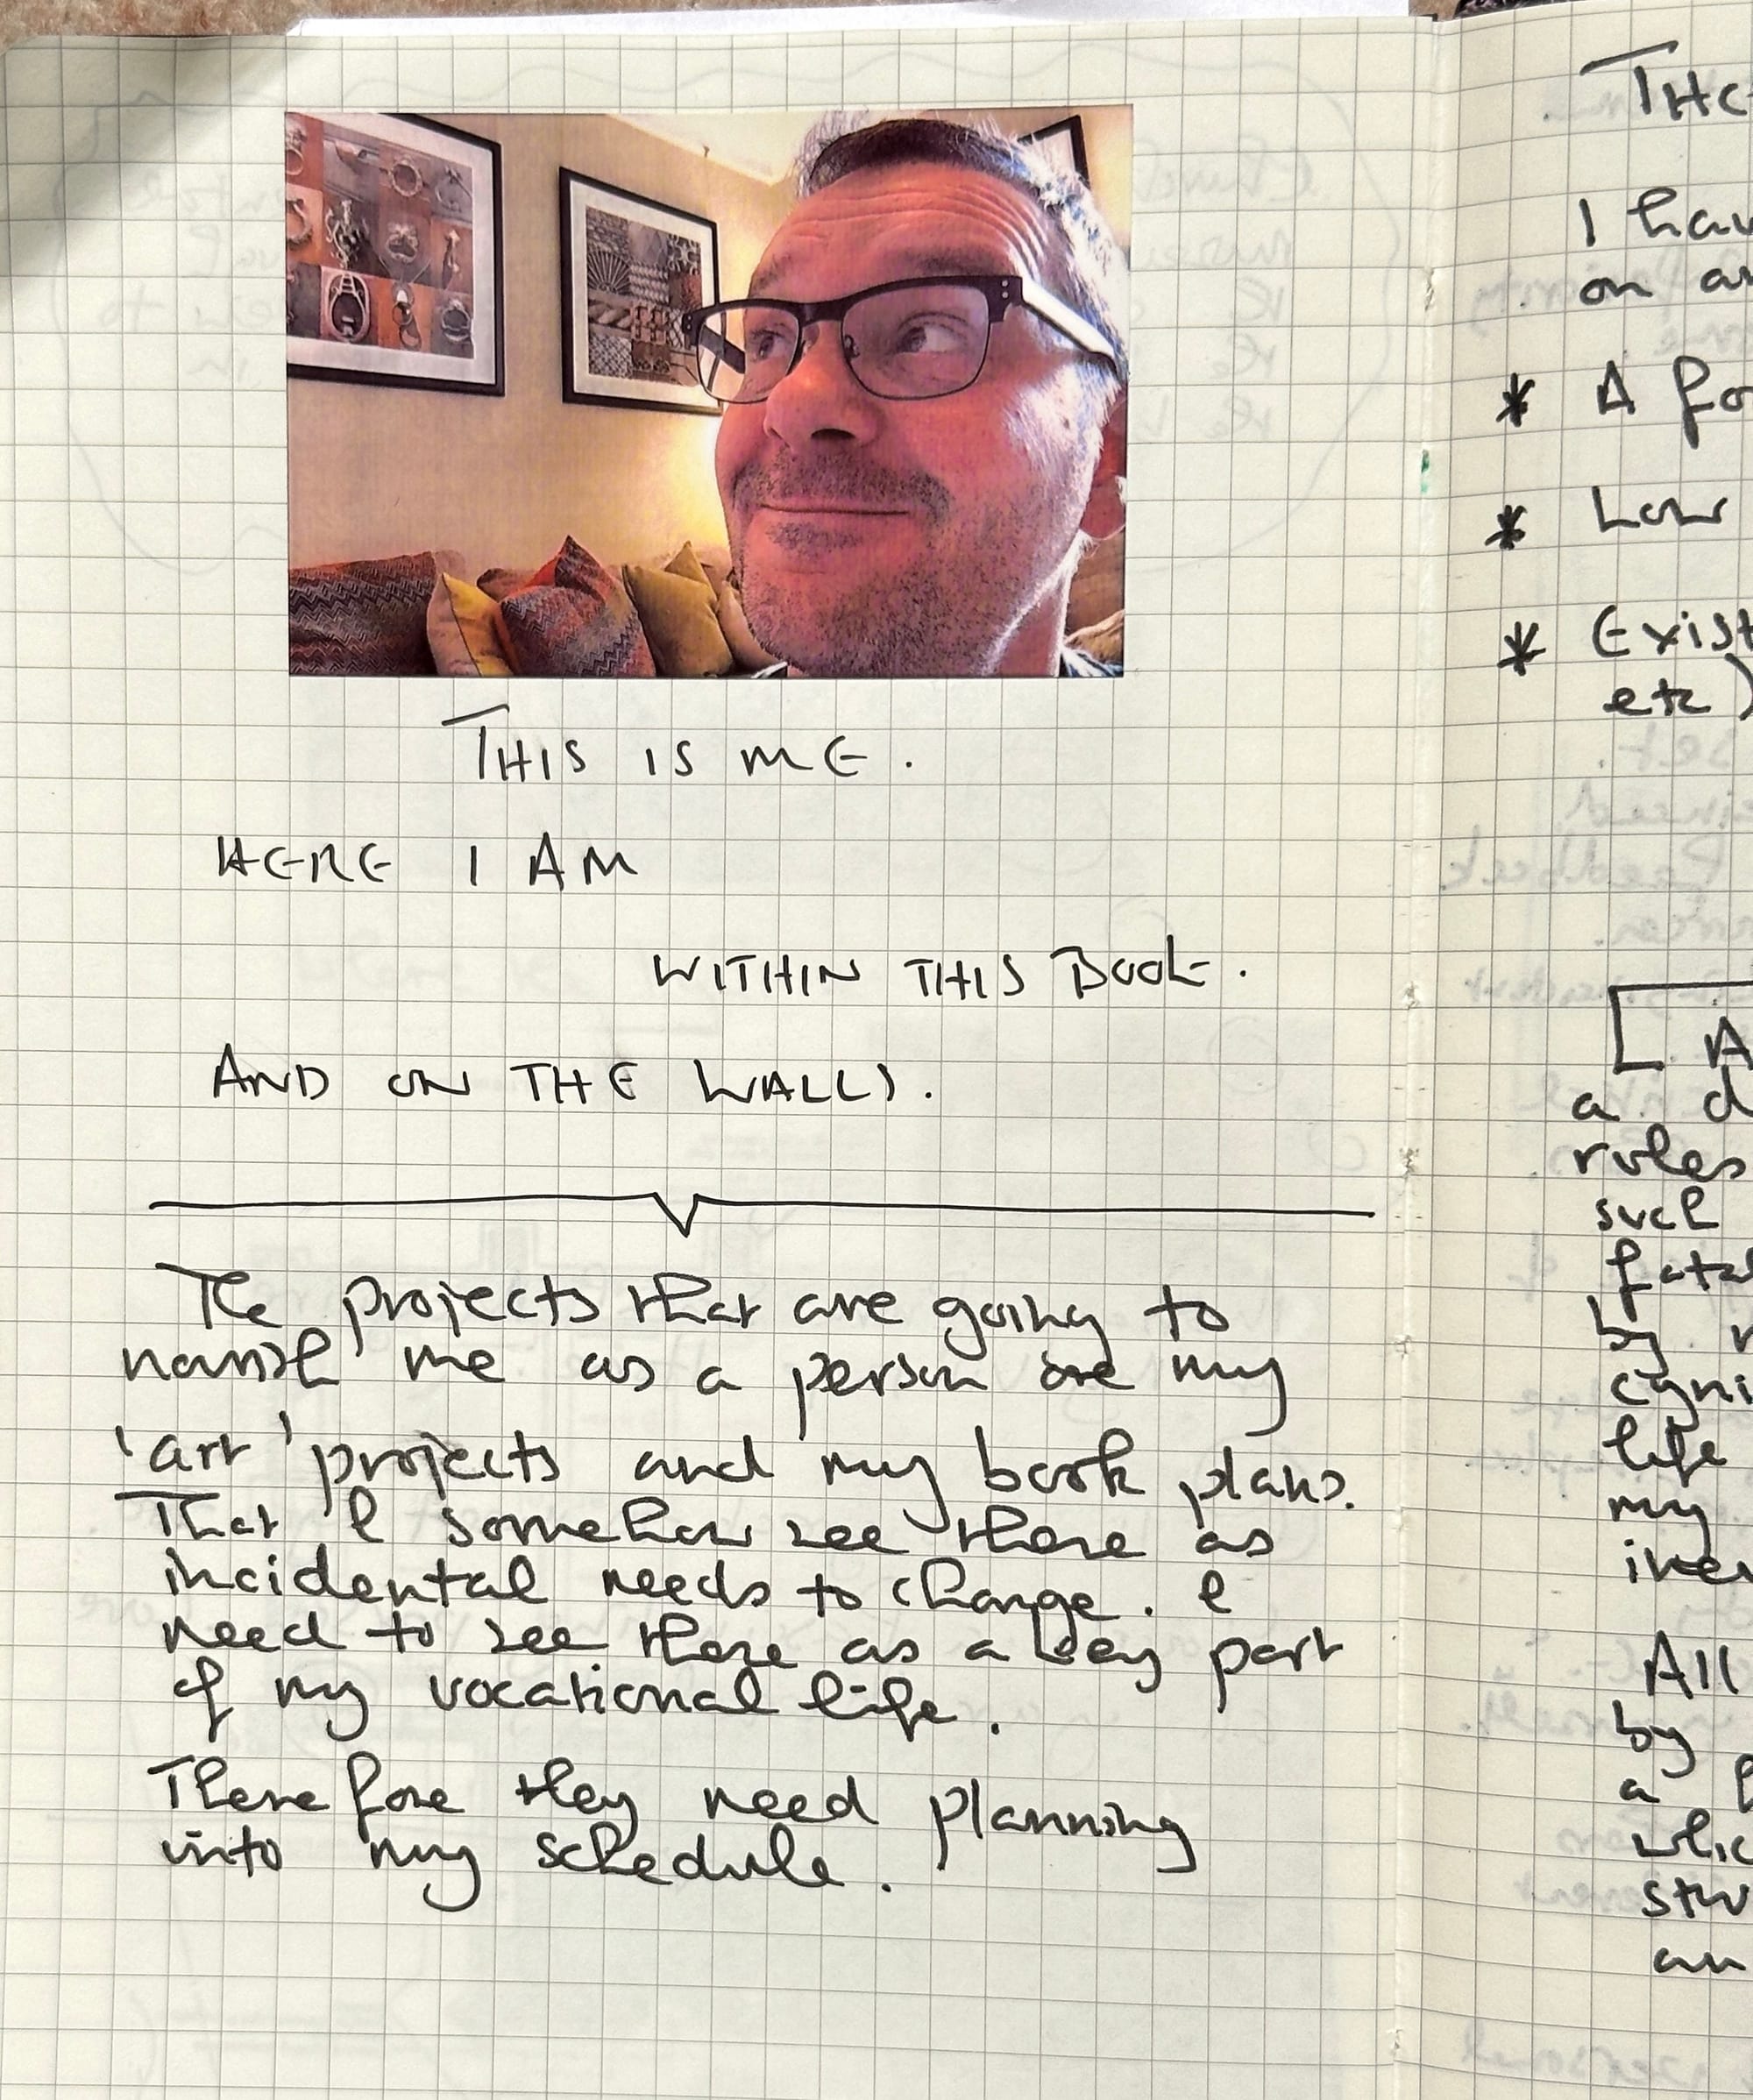 THIS IS ME.
HERE I AM
WITHIN THIS BOOK.
AND ON THE WALLS.
The projects that are going to
me as a person are my
'art' projects and my book plans.
That I somehow see these as
incidental needs to change. I
need to see these as a key part
of my vocational life.
Therefore they need planning
into my schedule.
I
on
* A
* Low
*
etc)
A
a
rules
such
by
life
my
All
by
a